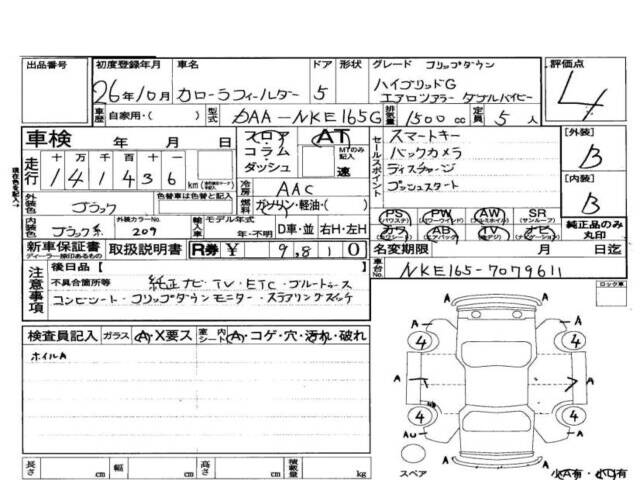 出品番号 初度登録年月 車名 ドア 形状 グレード フリップダウン 評価点
26年10月 カローラフィールダー 5 ハイブリッドG
エアロツアラー ダブルバイビー 4
車歴 自家用・( ) 型式 DAA-NKE165G 排気量 1500 cc 定員 5 人
車検 年 月 日 フロア・コラム・ダッシュ AT MTのみ記入 速
現在色を記入→
走行 十 万 千 百 十 一
1 4 1 4 3 6 km
冷房 AAC
セールスポイント スマートキー
バックカメラ
ディスチャージ
プッシュスタート
[外装] B
[内装] B
外装色 ブラック 色替車は色替と記入 燃料 ガソリン・軽油・( )
PS (パワステ) PW (パワーウインド) AW (アルミホイル) SR (サンルーフ)
カワ (カワシート) AB (エアバック) TV (地デジ) ナビ (ナビゲーション)
純正品のみ丸印
内装色 ブラック系 外装カラーNo. 209 輸入車 モデル年式 年・不明 D車・並 右H・左H
新車保証書 ディーラー捺印あるもの 取扱説明書 R券 ¥ 9,810
名変期限 月 日迄
車台No. NKE165-7079611
注意事項 後日品 [ ]
不具合箇所等 純正ナビ・TV・ETC・ブルートゥース
コンビシート・フリップダウンモニター・ステアリングスイッチ
ロック車
検査員記入 ガラス A・X要ス 室内シート A・コゲ・穴・汚れ・破れ
ホイルA
A 4 4 A
A A
A
4 4 A
AU
A
スペア 小A有・小U有
長さ cm 幅 cm 高さ cm 積載量 kg